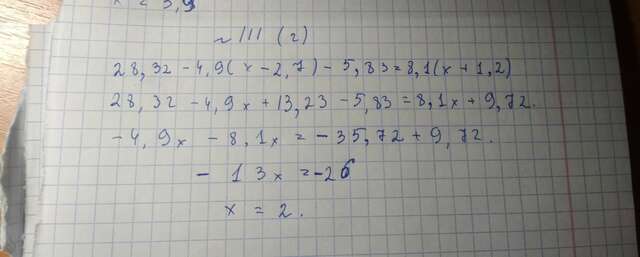 x = 3,9
~ 111 (г)
28,32 - 4,9(x - 2,7) - 5,83 = 8,1(x + 1,2)
28,32 - 4,9x + 13,23 - 5,83 = 8,1x + 9,72.
-4,9x - 8,1x = -35,72 + 9,72.
- 13x = -26
x = 2.